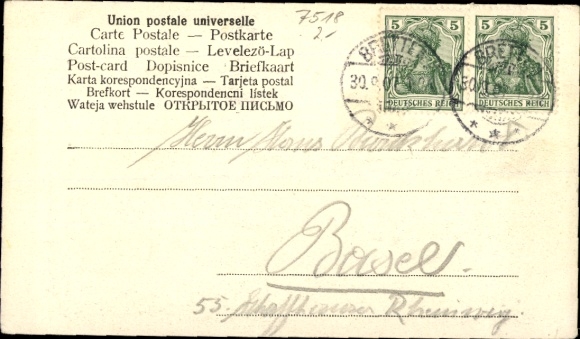 Union postale universelle
Carte Postale — Postkarte
Cartolina postale — Levelező-Lap
Post-card Dopisnice Briefkaart
Karta korespondencyjna — Tarjeta postal
Brefkort — Korespondencni lístek
Wateja wehstule ОТКРЫТОЕ ПИСЬМО
7518
2.-
5 5 5 5
DEUTSCHES REICH DEUTSCHES REICH
30.9.
Herrn Hans
Basel
55 Schaffhauser Rheinweg